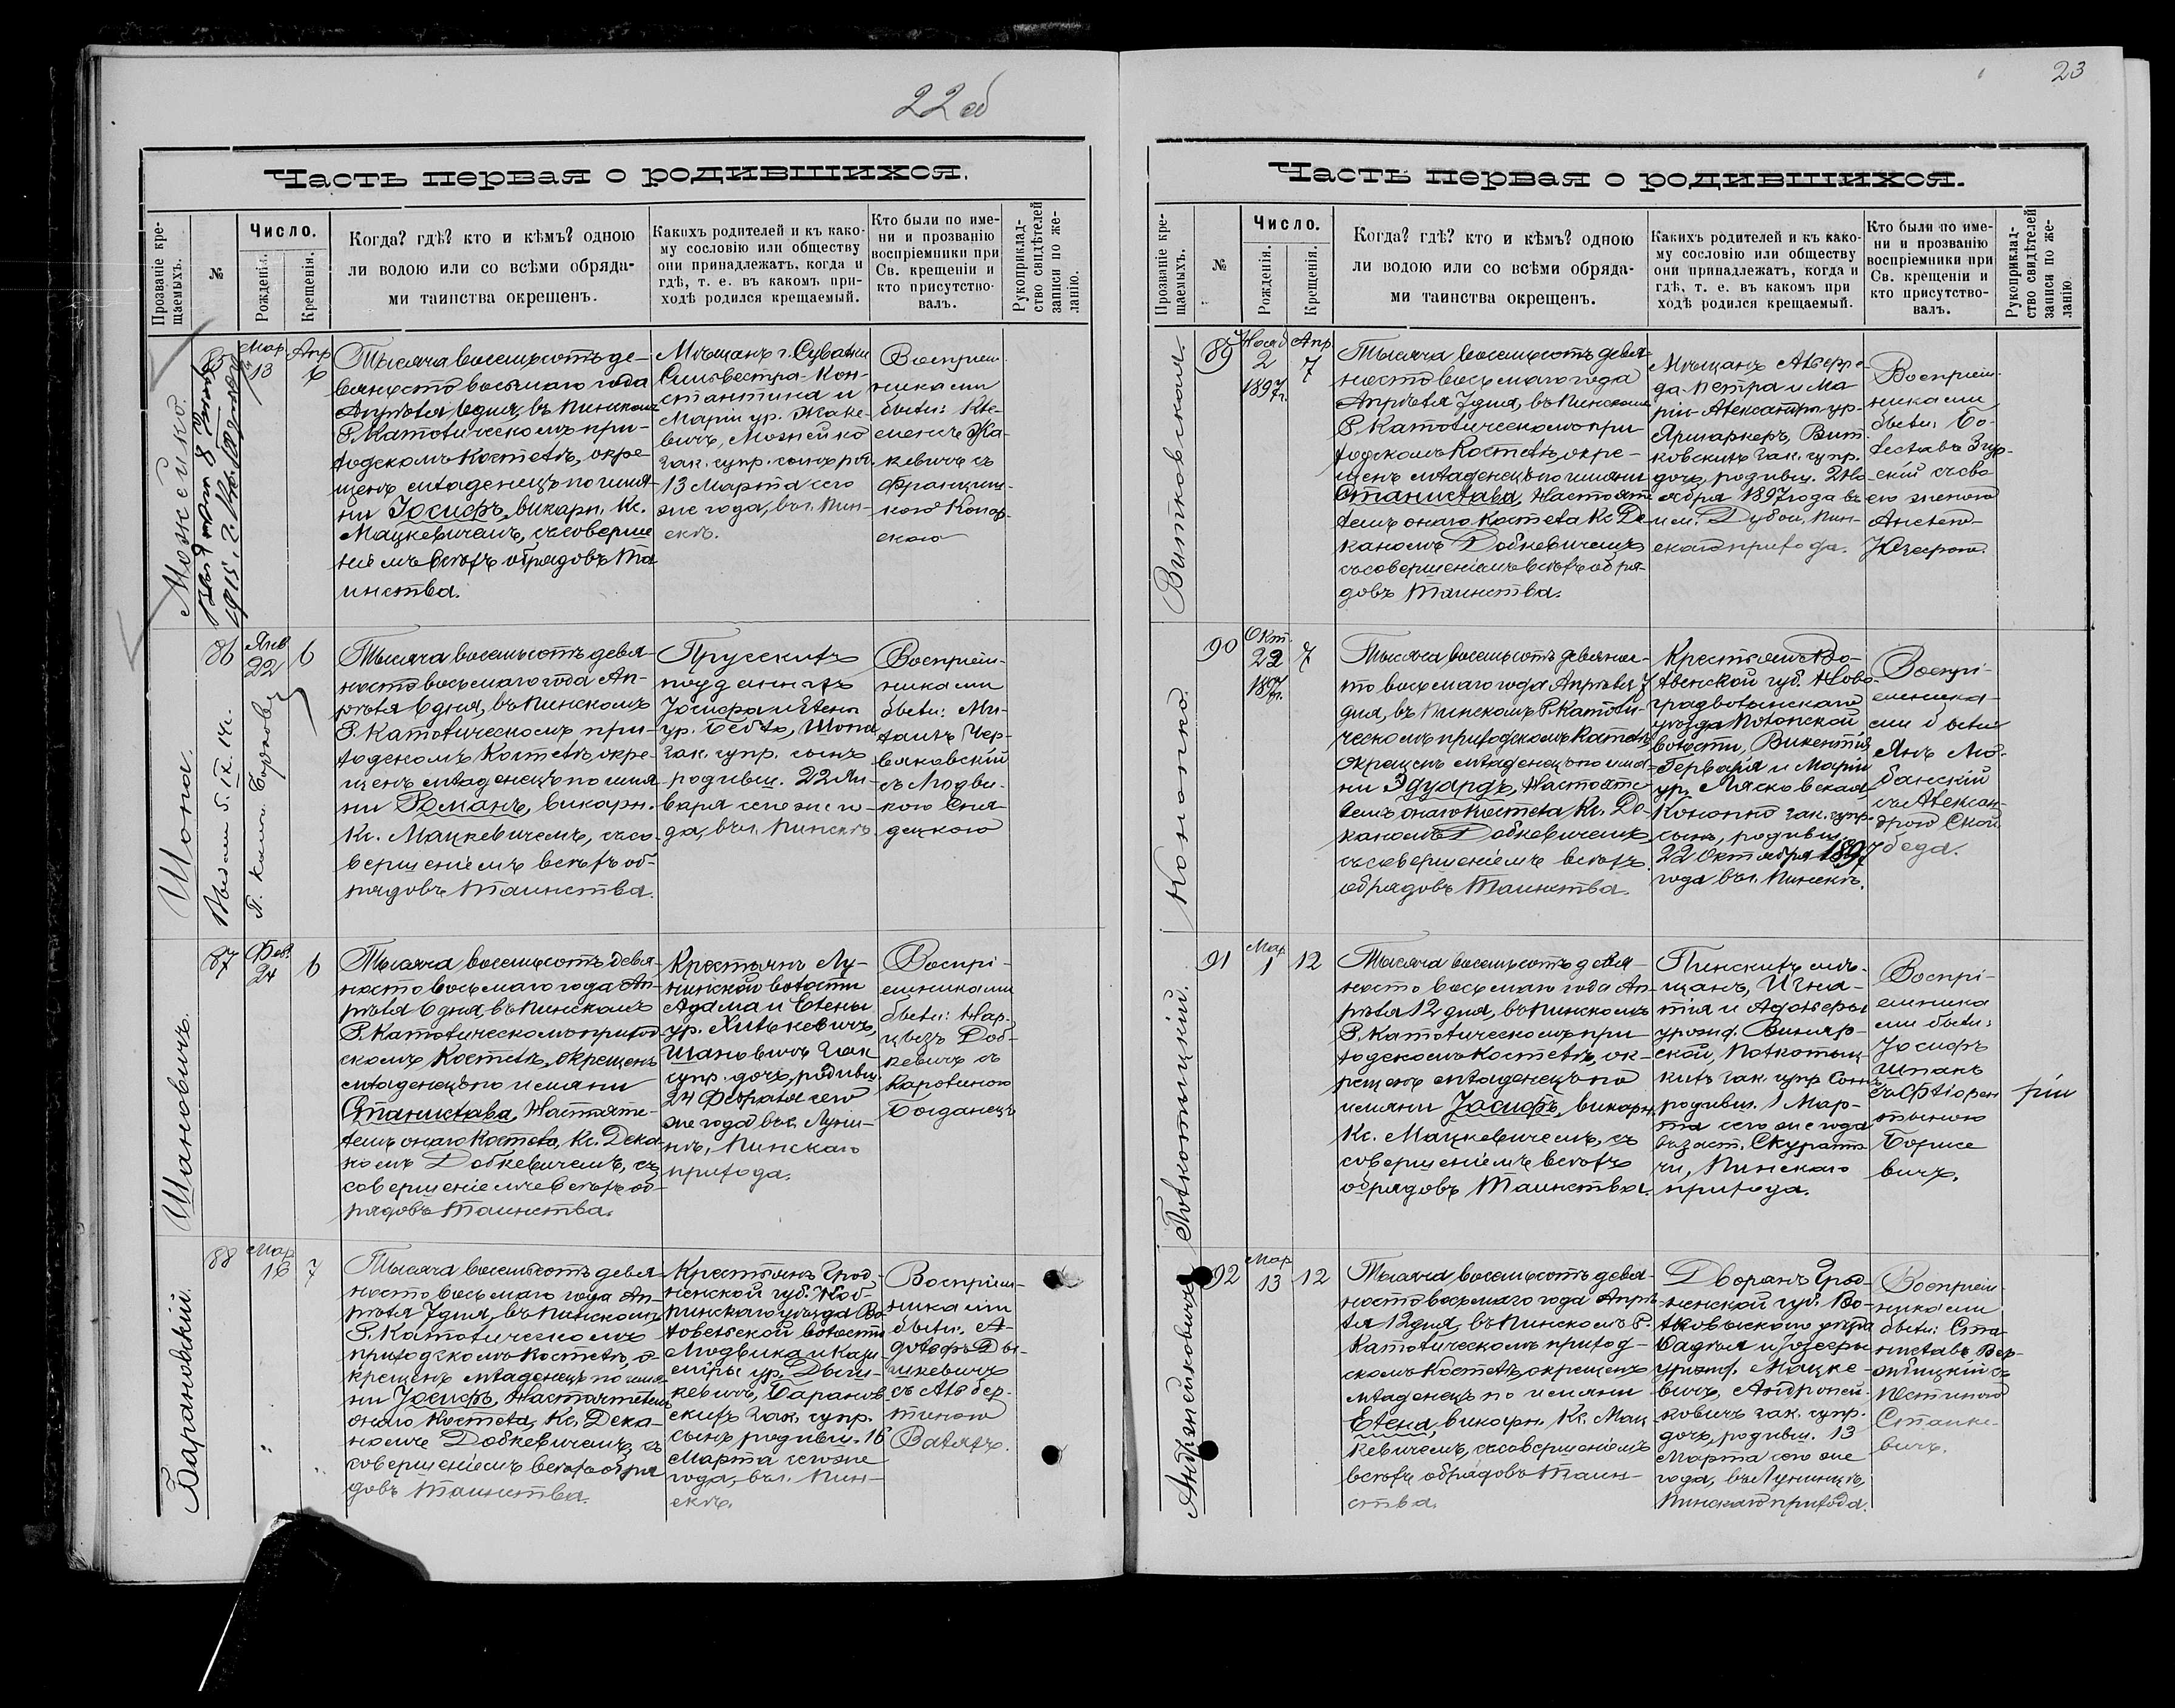 22 об
Часть первая о родившихся.
Прозваніе кре-
щаемыхъ.
№
Число.
Рожденія.
Крещенія.
Когда? гдѣ? кто и кѣмъ? одною
ли водою или со всѣми обряда-
ми таинства окрещенъ.
Какихъ родителей и къ како-
му сословію или обществу
они принадлежатъ, когда и
гдѣ, т. е. въ какомъ при-
ходѣ родился крещаемый.
Кто были по име-
ни и прозванію
воспріемники при
Св. крещеніи и
кто присутство-
валъ.
Рукоприклад-
ство свидѣтелей
записи по же-
ланію.
Можейко.
85
Мар.
13
Апр
6
Тысяча восемьсотъ де-
вяносто восьмаго года
Апрѣля 6 дня, въ Пинскомъ
Р. Католическомъ при-
ходскомъ Костелѣ, окре-
щенъ младенецъ по имя-
ни Іосифъ, викарн. Кс.
Мацкевичемъ, съ соверше
ніемъ всѣхъ обрядовъ Та
инства.
Мѣщанъ г. Сувалки
Сильвестра-Кон-
стантина и
Маріи ур. Жаке-
вичъ, Можейко
зак. супр. сынъ род.
13 Марта сего
же года, въ г. Пин-
скѣ.
Воспріем-
никами
были: Кле-
менсъ Жа-
кевичъ съ
Францишк-
кою Конар-
скою
Шопа.
86
Янв
22
6
Тысяча восемьсотъ девя-
носто восьмаго года Ап-
рѣля 6 дня, въ Пинскомъ
Р. Католическомъ при-
ходскомъ Костелѣ окре-
щенъ младенецъ по имя
ни Романъ, викарн.
Кс. Мацкевичемъ, съ со-
вершеніемъ всѣхъ об-
рядовъ Таинства.
Прусскихъ
подданныхъ
Іосифа и Елены
ур. Шопа
зак. супр. сынъ
родивш. 22 Ян-
варя сего же го-
да, въ г. Пинскѣ.
Воспріем-
никами
были: Ми-
хаилъ Чер-
вяковскій
съ Людви-
кою Сня-
децкою
Шановичъ.
87
Фев.
24
6
Тысяча восемьсотъ девя-
носто восьмаго года Ап-
рѣля 6 дня, въ Пинскомъ
Р. Католическомъ приход
скомъ Костелѣ, окрещенъ
младенецъ по имяни
Станислава, Настояте-
лемъ онаго Костела, Кс. Дека
номъ Добкевичемъ, съ
совершеніемъ всѣхъ об-
рядовъ Таинства.
Крестьянъ Лу-
нинской волости
Адама и Елены
ур. Хилькевичъ,
Шановичъ зак
супр. дочь, родивш.
24 Февраля сего
же года въ с. Луни-
нѣ, Пинскаго
прихода.
Воспрі-
емниками
были: Нар-
цызъ Доб-
кевичъ съ
Каролиною
Богданецъ
Барановскій.
88
Мар
16
7
Тысяча восемьсотъ девя-
носто восьмаго года Ап-
рѣля 7 дня, въ Пинскомъ
Р. Католическомъ
приходскомъ Костелѣ, о-
крещенъ младенецъ по имя
ни Іосифъ, Настоятелемъ
онаго Костела, Кс. Дека-
номъ Добкевичемъ, съ
совершеніемъ всѣхъ обря
довъ Таинства.
Крестьянъ Грод-
ненской губ. Коб-
ринскаго уѣзда Во-
ловельской волости
Людвика и Кази-
миры ур. Дыш-
кевичъ, Баранов-
скихъ зак. супр.
сынъ родивш. 16
Марта сего же
года, въ г. Пин-
скѣ.
Воспріем-
никами
были: А-
дольфъ Ды-
шкевичъ
съ Альбер-
тиною
Валяхъ.
23
Часть первая о родившихся.
Прозваніе кре-
щаемыхъ.
№
Число.
Рожденія.
Крещенія.
Когда? гдѣ? кто и кѣмъ? одною
ли водою или со всѣми обряда-
ми таинства окрещенъ.
Какихъ родителей и къ како-
му сословію или обществу
они принадлежатъ, когда и
гдѣ, т. е. въ какомъ при
ходѣ родился крещаемый.
Кто были по име-
ни и прозванію
воспріемники при
Св. крещеніи и
кто присутство-
валъ.
Рукоприклад-
ство свидѣтелей
записи по же-
ланію.
Витковская.
89
Нояб
2
1897 г.
Апр.
7
Тысяча восемьсотъ девя-
носто восьмаго года
Апрѣля 7 дня, въ Пинскомъ
Р. Католическомъ при
ходскомъ Костелѣ, окре-
щенъ младенецъ по имяни
Станислава, Настояте
лемъ онаго Костела Кс. Де
каномъ Добкевичемъ
съ совершеніемъ всѣхъ обря-
довъ Таинства.
Мѣщанъ Альфре-
да Петра и Ма-
ріи Александры ур.
Ярмаркеръ, Вит
ковскихъ зак. супр.
дочь, родивш. 2 Но
ября 1897 года въ
им. Дубои, Пин-
скаго прихода.
Воспріем-
никами
были: Бо-
леславъ Згур-
скій съ сво
ею женою
Анелею-
Юзефою.
Конопко.
90
Окт.
22
1897 г.
7
Тысяча восемьсотъ девянос-
то восьмаго года Апрѣля 7
дня, въ Пинскомъ Р. Католи-
ческомъ приходскомъ Костелѣ
окрещенъ младенецъ по имя-
ни Эдуардъ, Настояте-
лемъ онаго Костела, Кс. Де-
каномъ Добкевичемъ
съ совершеніемъ всѣхъ
обрядовъ Таинства.
Крестьянъ Во-
лынской губ. Ново-
градволынскаго
уѣзда Потонской
волости, Викентія
Гервасія и Маріи
ур. Лясковская
Конопко зак. супр.
сынъ, родивш.
22 Октября 1897
года въ г. Пинскѣ.
Воспрі-
емника-
ми были
Янъ Лю-
банскій
съ Алексан-
дрою Ской-
беда.
Полкотыцкій.
91
Мар
1
12
Тысяча восемьсотъ девя-
носто восьмаго года Ап-
рѣля 12 дня, въ Пинскомъ
Р. Католическомъ при
ходскомъ Костелѣ, ок-
рещенъ младенецъ по
имяни Іосифъ, викарн.
Кс. Мацкевичемъ, съ
совершеніемъ всѣхъ
обрядовъ Таинства.
Пинскихъ мѣ-
щанъ, Игна-
тія и Адольфы
урожд. Виняр-
ской, Полкотыц-
кихъ зак. супр. сынъ
родивш. 1 Мар-
та сего же года
въ заст. Скурато-
чи, Пинскаго
прихода.
Воспрі-
емника
ми были:
Іосифъ
Шпакъ
съ Флорен
тыною
Борисе
вичъ.
Андржейковичъ
92
Мар
13
12
Тысяча восемьсотъ девя-
носто восьмаго года Апрѣ-
ля 12 дня, въ Пинскомъ Р.
Католическомъ приход-
скомъ Костелѣ окрещенъ
младенецъ по имяни
Елена, викарн. Кс. Мац
кевичемъ, съ совершеніемъ
всѣхъ обрядовъ Таин-
ства.
Дворянъ Грод-
ненской губ. Во-
лковыскаго уѣзда
Фадѣя и Іозефы
урожд. Мацке-
вичъ, Андржей-
ковичъ зак. супр.
дочь, родивш. 13
Марта сего же
года, въ Лунинцѣ,
Пинскаго прихода.
Воспріем-
никами
были: Ста-
ниславъ Вер-
съ
Юстиною
Станке-
вичъ.